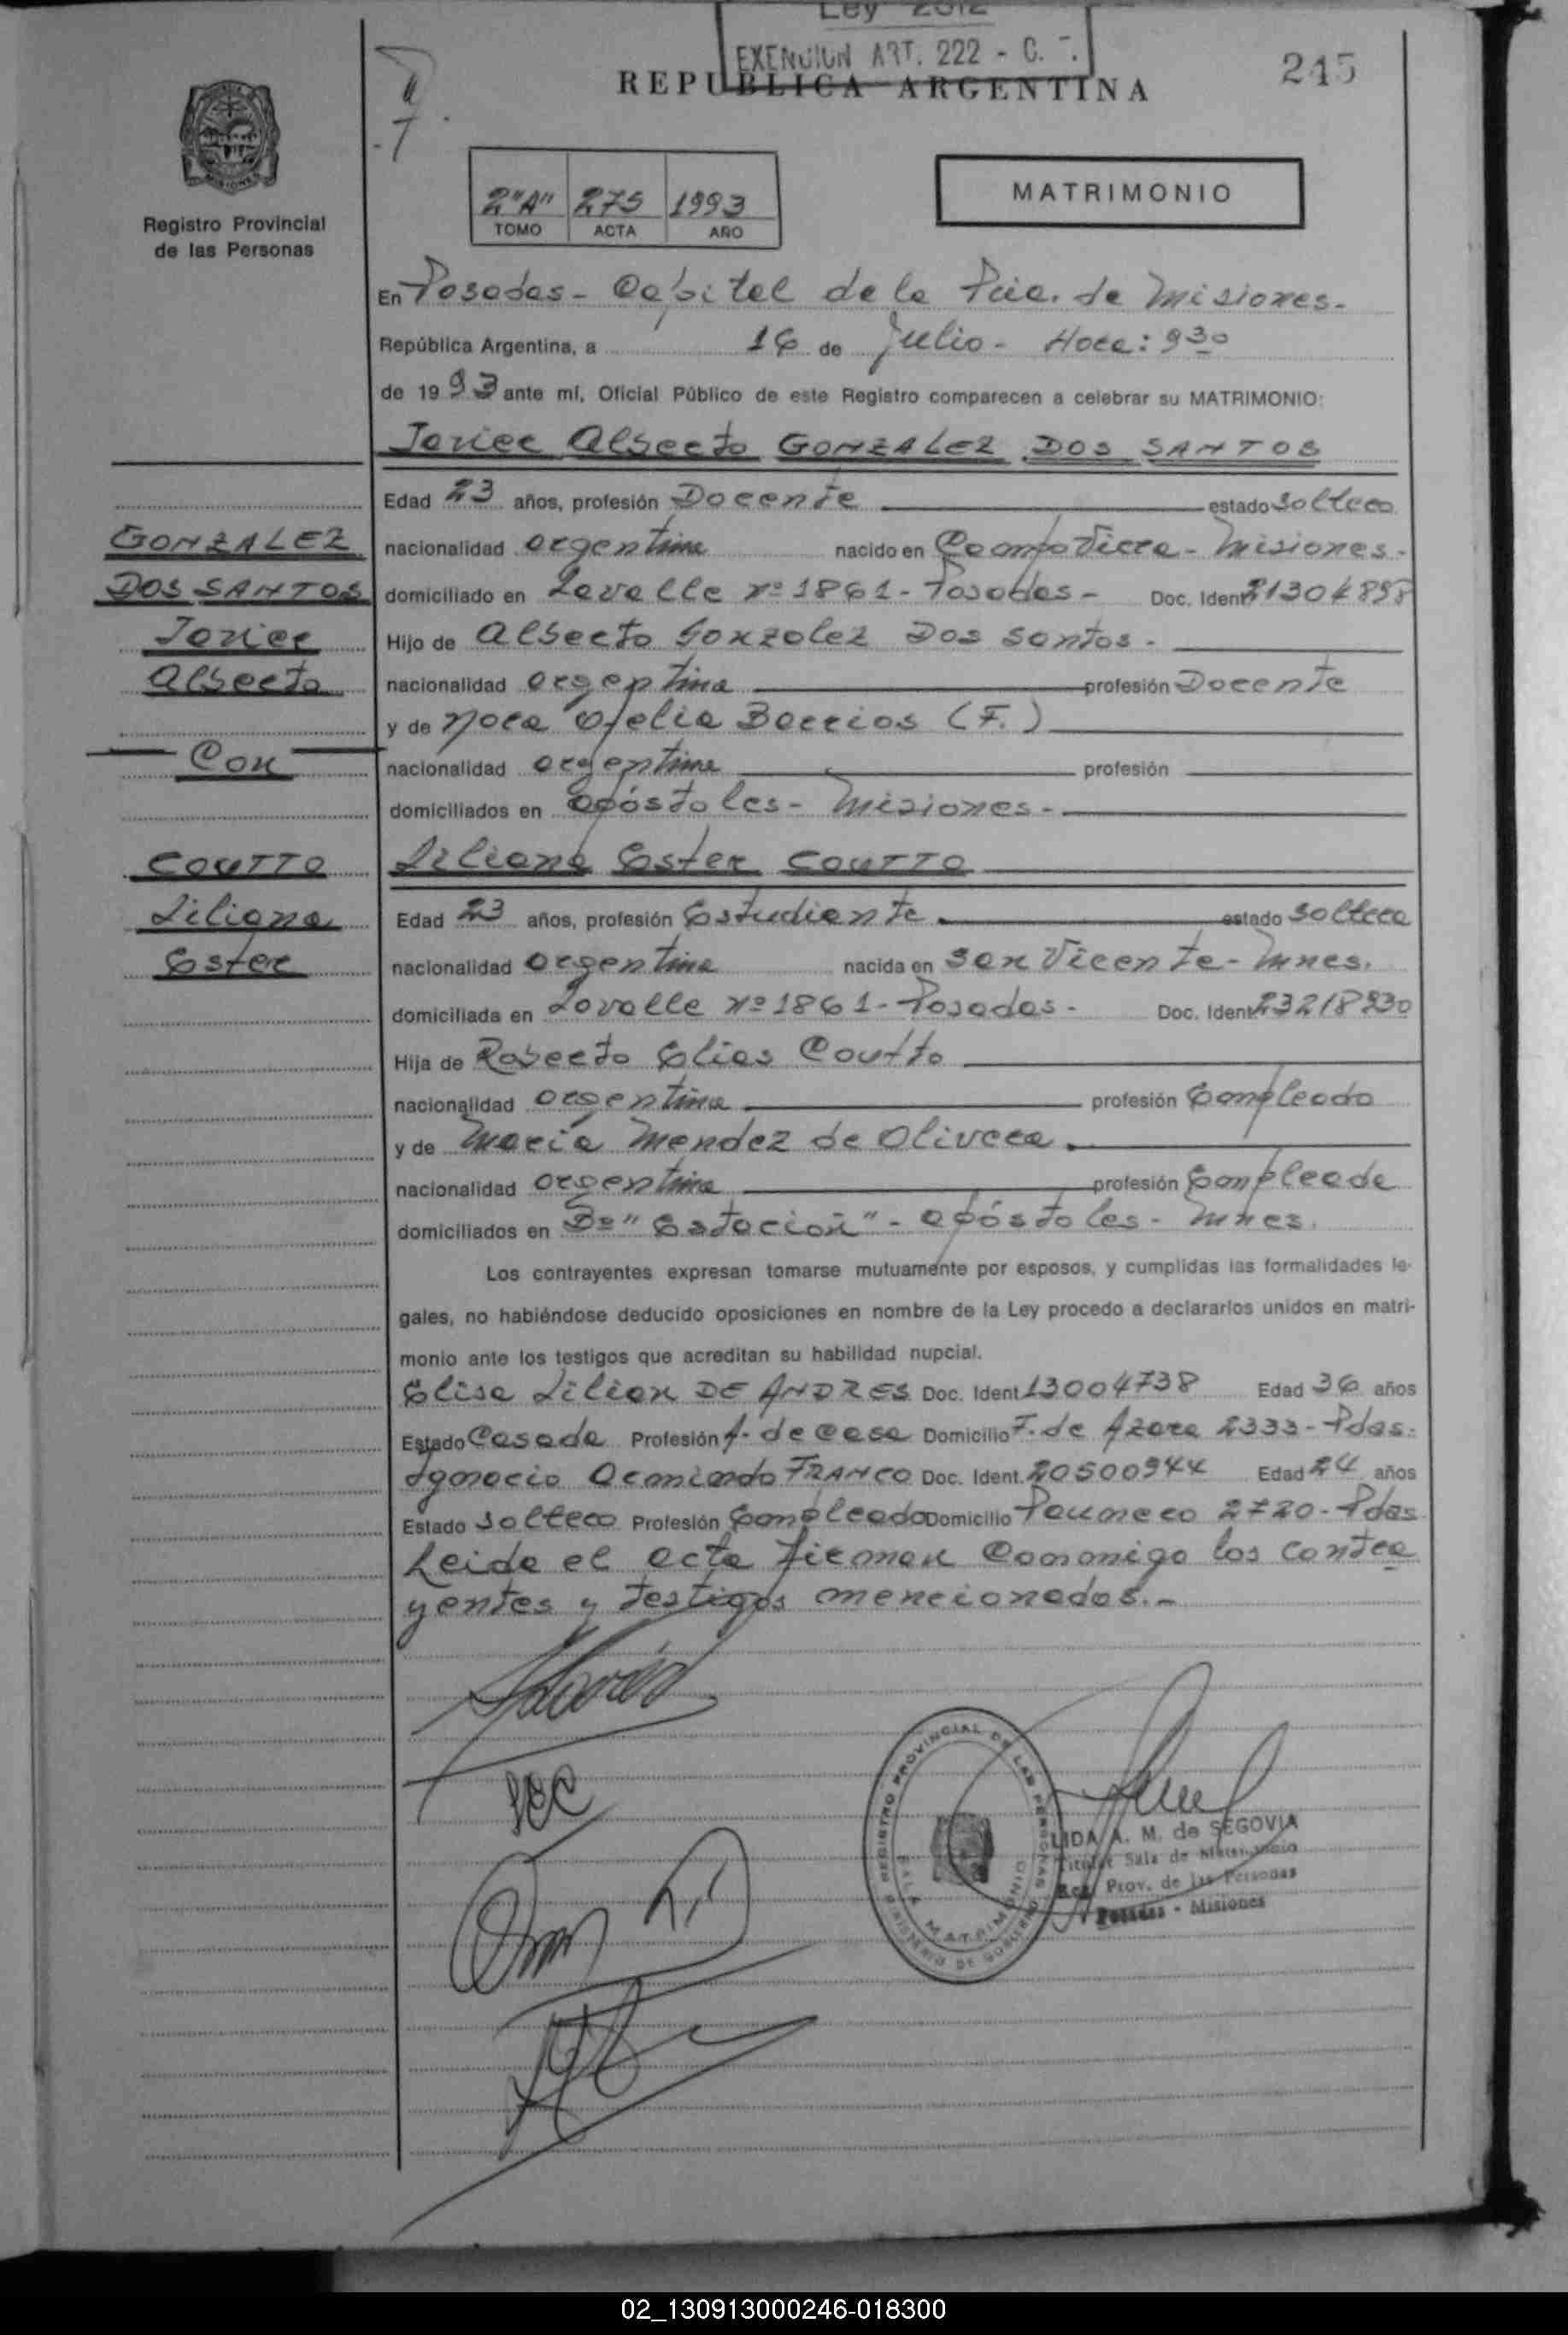 Ley 2512
EXENCION ART. 222 - C.
REPUBLICA ARGENTINA
245
MISIONES
Registro Provincial
de las Personas
2"A" 275 1993
TOMO ACTA AÑO
MATRIMONIO
En Posadas - Capital de la Pcia. de Misiones.-
República Argentina, a 16 de Julio - Hora: 9 30
de 1993 ante mí, Oficial Público de este Registro comparecen a celebrar su MATRIMONIO:
Javier Alberto GONZALEZ DOS SANTOS
Edad 23 años, profesión Docente estado soltero
GONZALEZ
nacionalidad argentina nacido en Campo Viera - Misiones -
DOS SANTOS
domiciliado en Lavalle nº 1861 - Posadas - Doc. Ident 21304898
Javier
Hijo de Alberto Gonzalez Dos Santos -
Alberto
nacionalidad argentina profesión Docente
y de Nora Ofelia Barrios (F.)
Con
nacionalidad argentina profesión
domiciliados en Apóstoles - Misiones -
COUTTO
Liliana Ester COUTTO
Liliana
Edad 23 años, profesión Estudiante estado soltera
Ester
nacionalidad argentina nacida en San Vicente - Mnes.
domiciliada en Lavalle nº 1861 - Posadas - Doc. Ident 23218930
Hija de Roberto Elias Coutto
nacionalidad argentina profesión Empleado
y de María Mendez de Olivera
nacionalidad argentina profesión Empleada
domiciliados en Bº "Estación" - Apóstoles - Mnes.
Los contrayentes expresan tomarse mutuamente por esposos, y cumplidas las formalidades le-
gales, no habiéndose deducido oposiciones en nombre de la Ley procedo a declararlos unidos en matri-
monio ante los testigos que acreditan su habilidad nupcial.
Elisa Lilian DE ANDRES Doc. Ident 13004738 Edad 36 años
Estado Casada Profesión A. de Casa Domicilio F. de Azara 2333 - Pdas.
Ignacio Armando FRANCO Doc. Ident. 20500944 Edad 24 años
Estado soltero Profesión Empleado Domicilio Paunero 2720 - Pdas
Leida el acta firman conmigo los contra
yentes y testigos mencionados.-
REGISTRO PROVINCIAL DE LAS PERSONAS
SALA MATRIMONIO
MINISTERIO DE GOBIERNO
LIDA A. M. de SEGOVIA
Titular Sala de Matrimonio
Reg. Prov. de las Personas
Posadas - Misiones
02_130913000246-018300